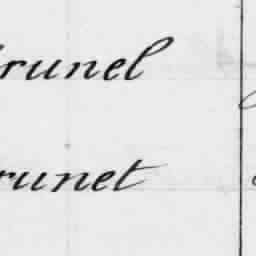 runel
runet